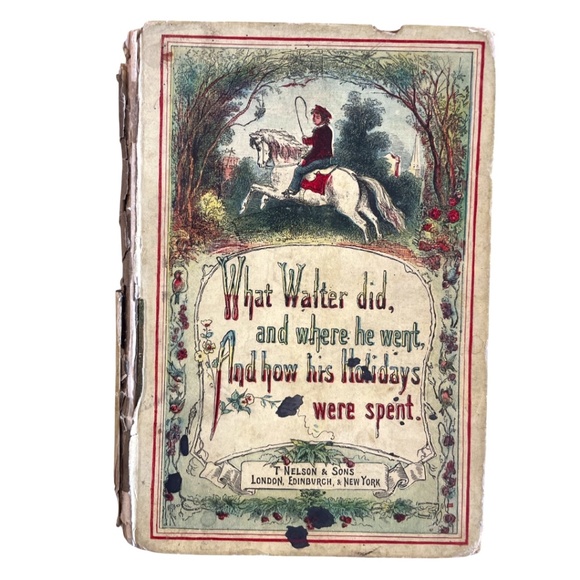 What Walter did,
and where he went,
And how his Holidays
were spent.
T NELSON & SONS
LONDON, EDINBURGH, & NEW YORK